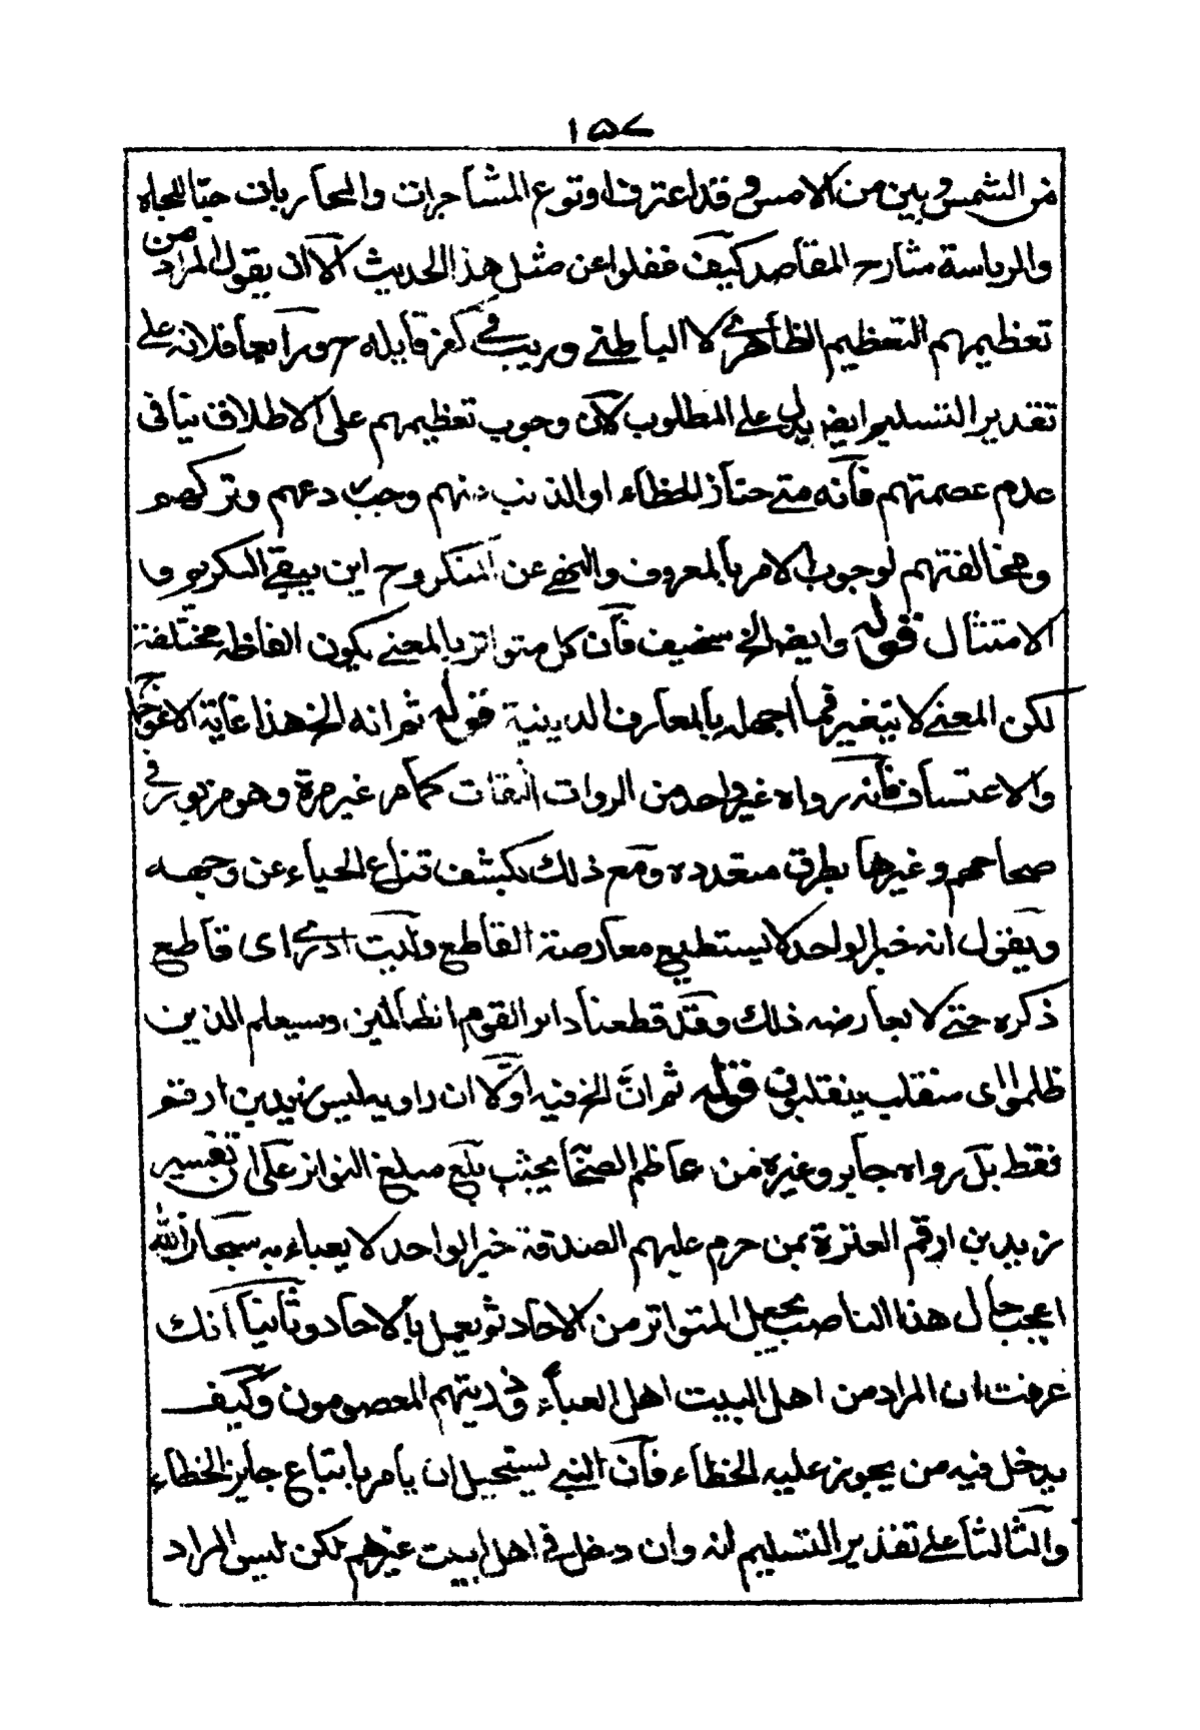 ١٥٧
من الشمس وبين من الامس وقد اعترف او توع المشاجرات والمحاربات حبّا للجاه
والرياسة شارح المقاصد كيف غفلوا عن مثل هذا الحديث الا ان يقول المراد من
تعظيمهم التعظيم الظاهرى لا الباطنى وريب فى كفر قايله
تقدير التسليم ايضا يدل على المطلوب لان وجوب تعظيمهم على الاطلاق ينافى
عدم عصمتهم فانه متى جاز الخطاء او الذنب منهم وجب دعهم وتركهم
ومخالفتهم لوجوب الامر بالمعروف والنهى عن المنكر وح اين يبقى التكريم و
الامتثال قوله وايضا الخ سخيف فان كل متواتر بالمعنى يكون الفاظه مختلفة
لكن المعنى لا يتغير فما اجهله بالمعارف الدينية قوله ثم انه الخ هذا غاية الاعوجاج
والاعتساف فانه رواه غير واحد من الروات الثقات كما مر غير مرة وهو مزبور فى
صحاحهم وغيرها بطرق متعدده ومع ذلك يكشف قناع الحياء عن وجهه
ويقول انه خبر الواحد لا يستطيع معارضة القاطع وليت ادرى اى قاطع
ذكره حتى لا يعارضه ذلك وقد قطعنا دابر القوم الظالمين وسيعلم الذين
ظلموا اى منقلب ينقلبون قوله ثم انّ الخ فيه اوّلا ان راويه ليس زيد بن ارقم
فقط بل رواه جابر وغيره من اعاظم الصحابة بحيث بلغ مبلغ التواتر على ان تفسير
زيد بن ارقم العترة بمن حرم عليهم الصدقة خبر الواحد لا يعباء به سبحان الله
اعجب حال هذا الناصب يجعل المتواتر من الاحاد ثم يعمل بالاحاد وثانيا انك
عرفت ان المراد من اهل البيت اهل العباء وذريتهم المعصومون وكيف
يدخل فيه من يجوز عليه الخطاء فان النبى يستحيل ان يأمر باتباع جايز الخطاء
والثالثا على تقدير التسليم انه وان دخل فى اهل البيت غيرهم لكن ليس المراد